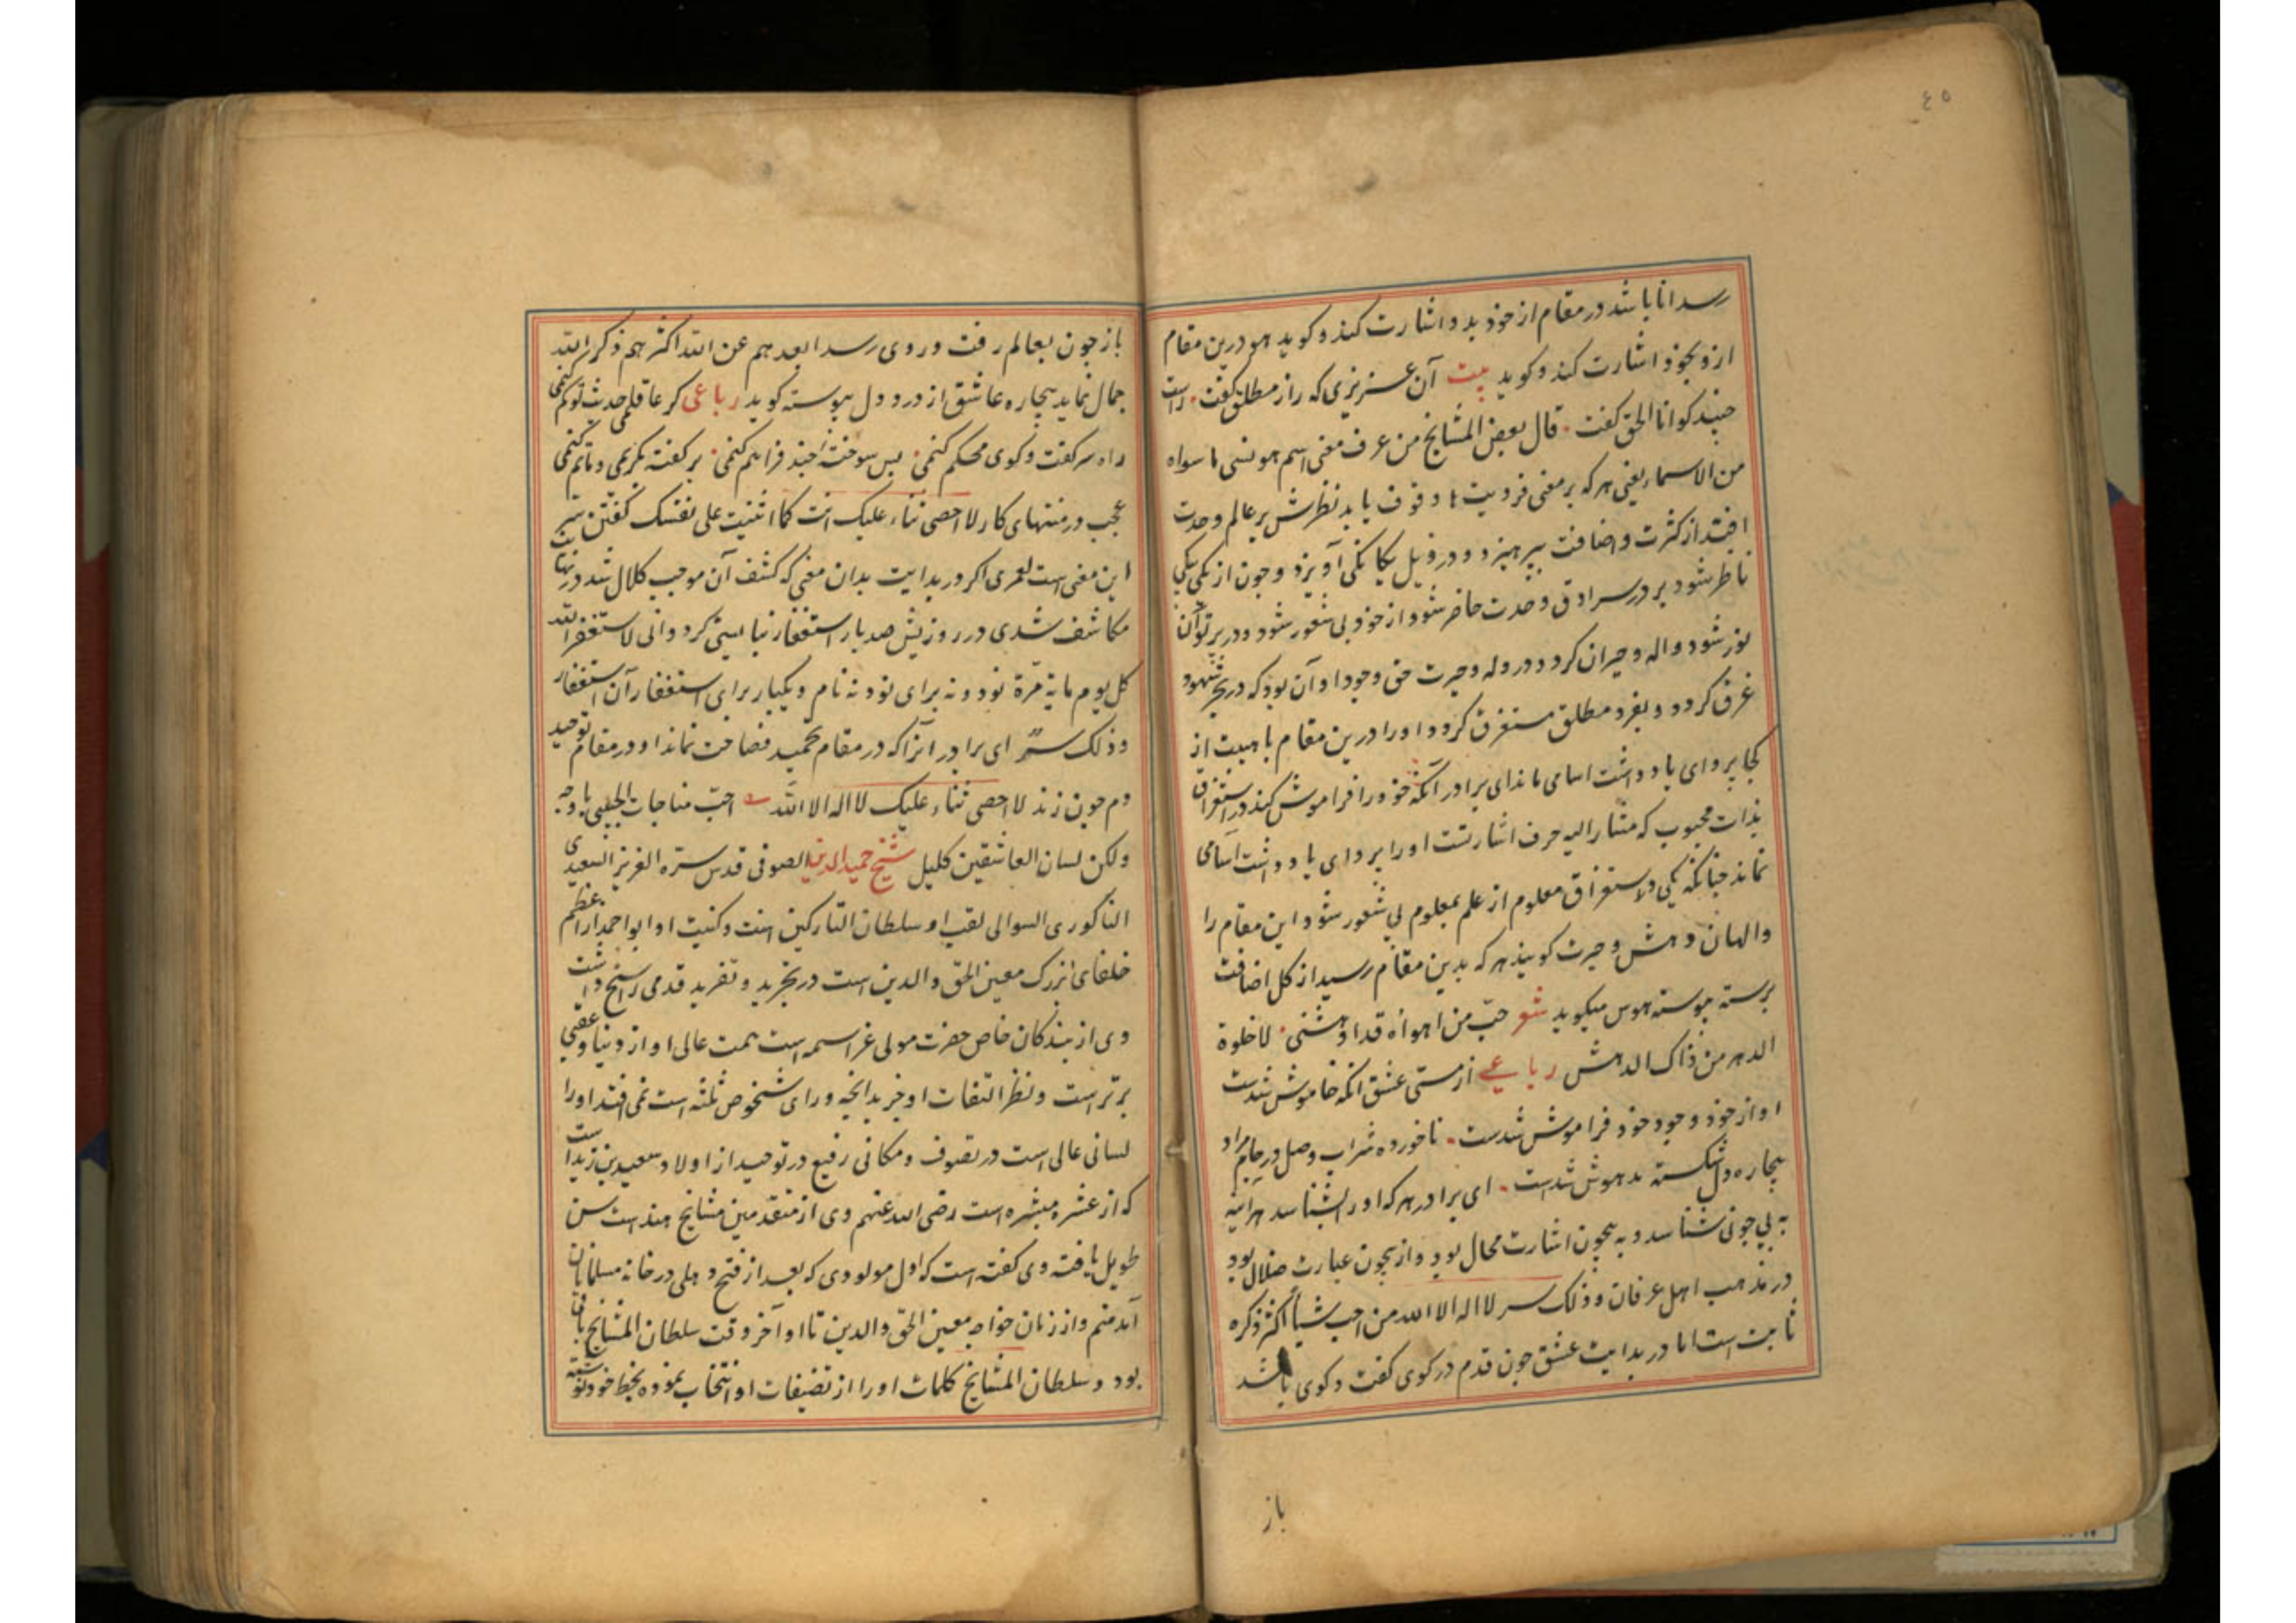 ٤٥
رسد انا باشد در مقام از خود بدو اشارت کند و کوید هو درین مقام
ازو بخود اشارت کند و کوید بیت آن عزیزی که راز مطلق کفت راست
جنبد کو انا الحق کفت قال بعض المشایخ من عرف معنی اسم هو نسی ما سواه
من الاسماء یعنی هر که بر معنی فردیت ما وقوف یابد نظرش بر عالم وحدت
افتد از کثرت و اضافت بپرهیزد و در ذیل یکانکی آویزد و جون از یکی بیکی
ناظر شود بر در سرادق وحدت حاضر شود از خود بی شعور شود و در پرتو آن
نور شود واله و حیران کردد در وله و حیرت حق وجود او آن بود که در بحر شهود
غرق کردد و بفرد مطلق مستغرق کردد او را درین مقام با هیبت از
کجا پروای یادداشت اسامی ماند ای برادر آنکه خود را فراموش کند در استغراق
بذات محبوب که مشار الیه حرف اشارتست او را پروای یادداشت اسامی
نماند جنانکه یکی در استغراق معلوم از علم بمعلوم بی شعور شود این مقام را
والهان دهش و حیرت کویند هر که بدین مقام رسید از کل اضافت
برسته پیوسته هوس میکوید شعر حب من اهواه قد ادهشنی لا خلوة
الدهر من ذاک الدهش رباعی از مستی عشق انکه خاموش شدست
او از خود وجود خود فراموش شدست ناخورده شراب وصل در جام مراد
بیجاره دل شکسته مدهوش شدست ای برادر هر که او را بشناسد هر اینه
به بی جونی شناسد و به بیجون اشارت محال بود و از بیجون عبارت ضلال بود
در مذهب اهل عرفان و ذلک سر لا اله الا الله من احب شیأ اکثر ذکره
ثابت است اما در بدایت عشق جون قدم در کوی کفت و کوی باشد
باز
باز جون بعالم رفت و روی رسد ابعدهم عن الله اکثرهم ذکر الله
جمال نماید بیجاره عاشق از درد دل پیوسته کوید رباعی کر عاقلمی حدث تو کم کنمی
راه سر کفت و کوی محکم کنمی بس سوخته اجند فراهم کنمی بر کفته بکریمی و ماتم کنمی
عجب در منتهای کار لا احصی ثناء علیک انت کما اثنیت علی نفسک کفتن سر
این معنی است لعمری اکر در بدایت بدان معنی که کشف آن موجب کلال شد در نهایت
مکاشف شدی در روز بیش صد بار استغفار نبایستی کرد و انی لاستغفر الله
کل یوم مایة مرة نود و نه برای نود و نه نام و یکبار برای استغفار آن استغفار
و ذلک سر ای برادر آنرا که در مقام تحمید فصاحت نماند او در مقام توحید
دم جون زند لا احصی ثناء علیک لا اله الا الله احب مناجات الحبیب باوجه
ولکن لسان العاشقین کلیل شیخ حمید الدین الصوفی قدس سره العزیز السعیدی
الناکوری السوالی لقب او سلطان التارکین است و کنیت او ابو احمد از اعظم
خلفای بزرک معین الحق والدین است در تجرید و تفرید قدمی راسخ داشت
وی از بندکان خاص حضرت مولی عز اسمه است همت عالی او از دنیا و عقبی
برتر است و نظر التفات او جز بدانجه ورای شخوص ثلثه است نمی افتد او را
لسانی عالی است در تصوف و مکانی رفیع در توحید از اولاد سعید بن زید است
که از عشره مبشره است رضی الله عنهم وی از متقدمین مشایخ هند است سن
طویل یافته وی کفته است که اول مولودی که بعد از فتح دهلی در خانه مسلمانان
آمد منم و از زمان خواجه معین الحق والدین تا اوآخر وقت سلطان المشایخ باقی
بود و سلطان المشایخ کلمات او را از تصنیفات او انتخاب نموده بخط خود نوشته